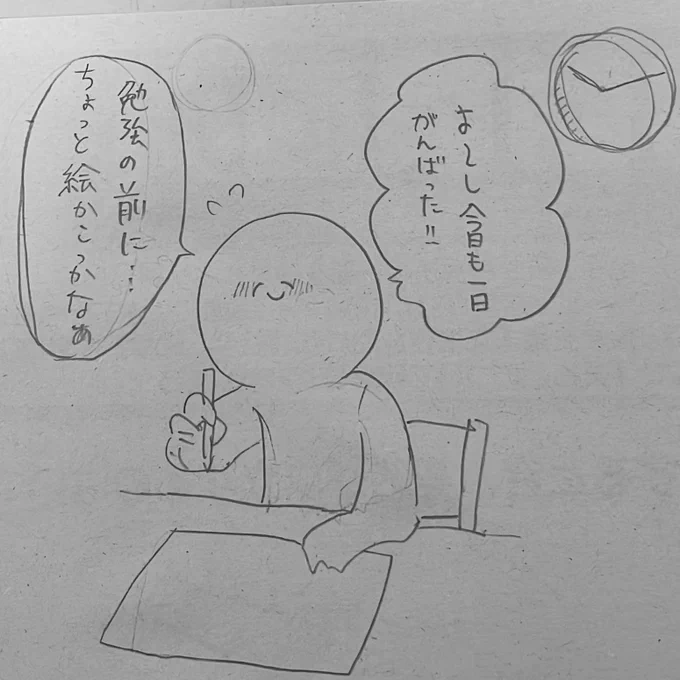 よ〜し今日も一日
がんばった!!
勉強の前に…
ちょっと絵かこっかなぁ